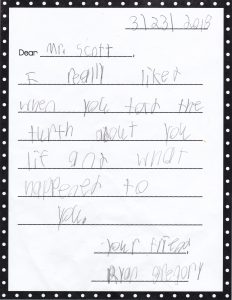 3/23/2018
Dear Mr. Scott,
I really liked
when you told the
turth about you
lif and what
happened to
you.
your friend,
Ryan Gregory